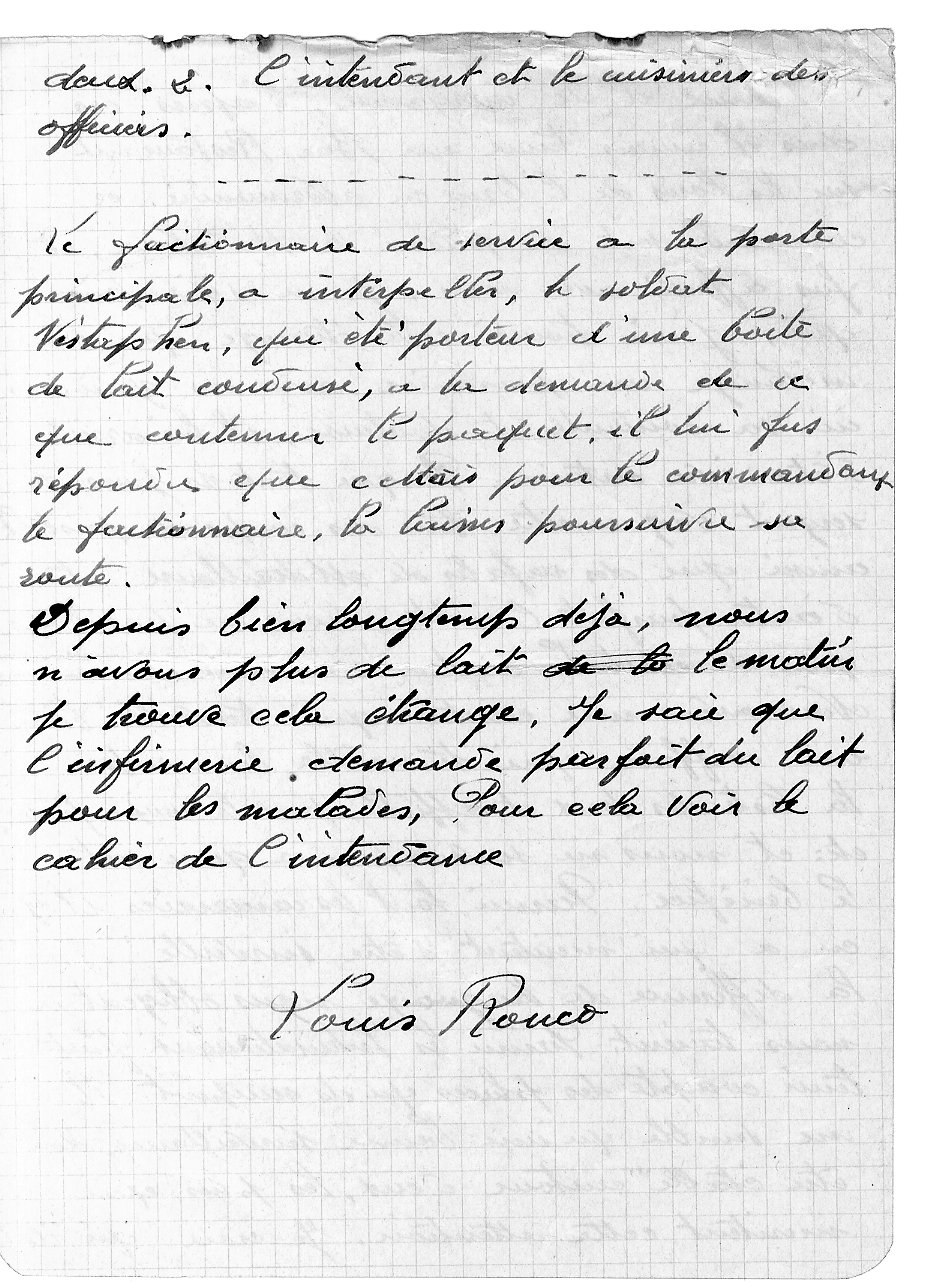 deux. 2. l'intendant et le cuisiniers des
officiers.
Le factionnaire de service a la porte
principale, a interpeller, le soldat
Vestaphen, qui été porteur d'une boite
de lait condensé, a la demande de ce
que contenner le paquet, il lui fus
répondu que cettais pour le commandant
le factionnaire, la laisser poursuivre sa
route.
Depuis bien longtemp déja, nous
n'avons plus de lait de la le matin
je trouve cela étrange, Je sais que
l'infirmerie demande parfoit du lait
pour les malades, Pour cela voir le
cahier de l'intendance
Louis Ronco